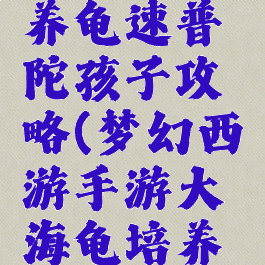 养龟速普
陀孩子攻
略(梦幻西
游手游大
海龟培养